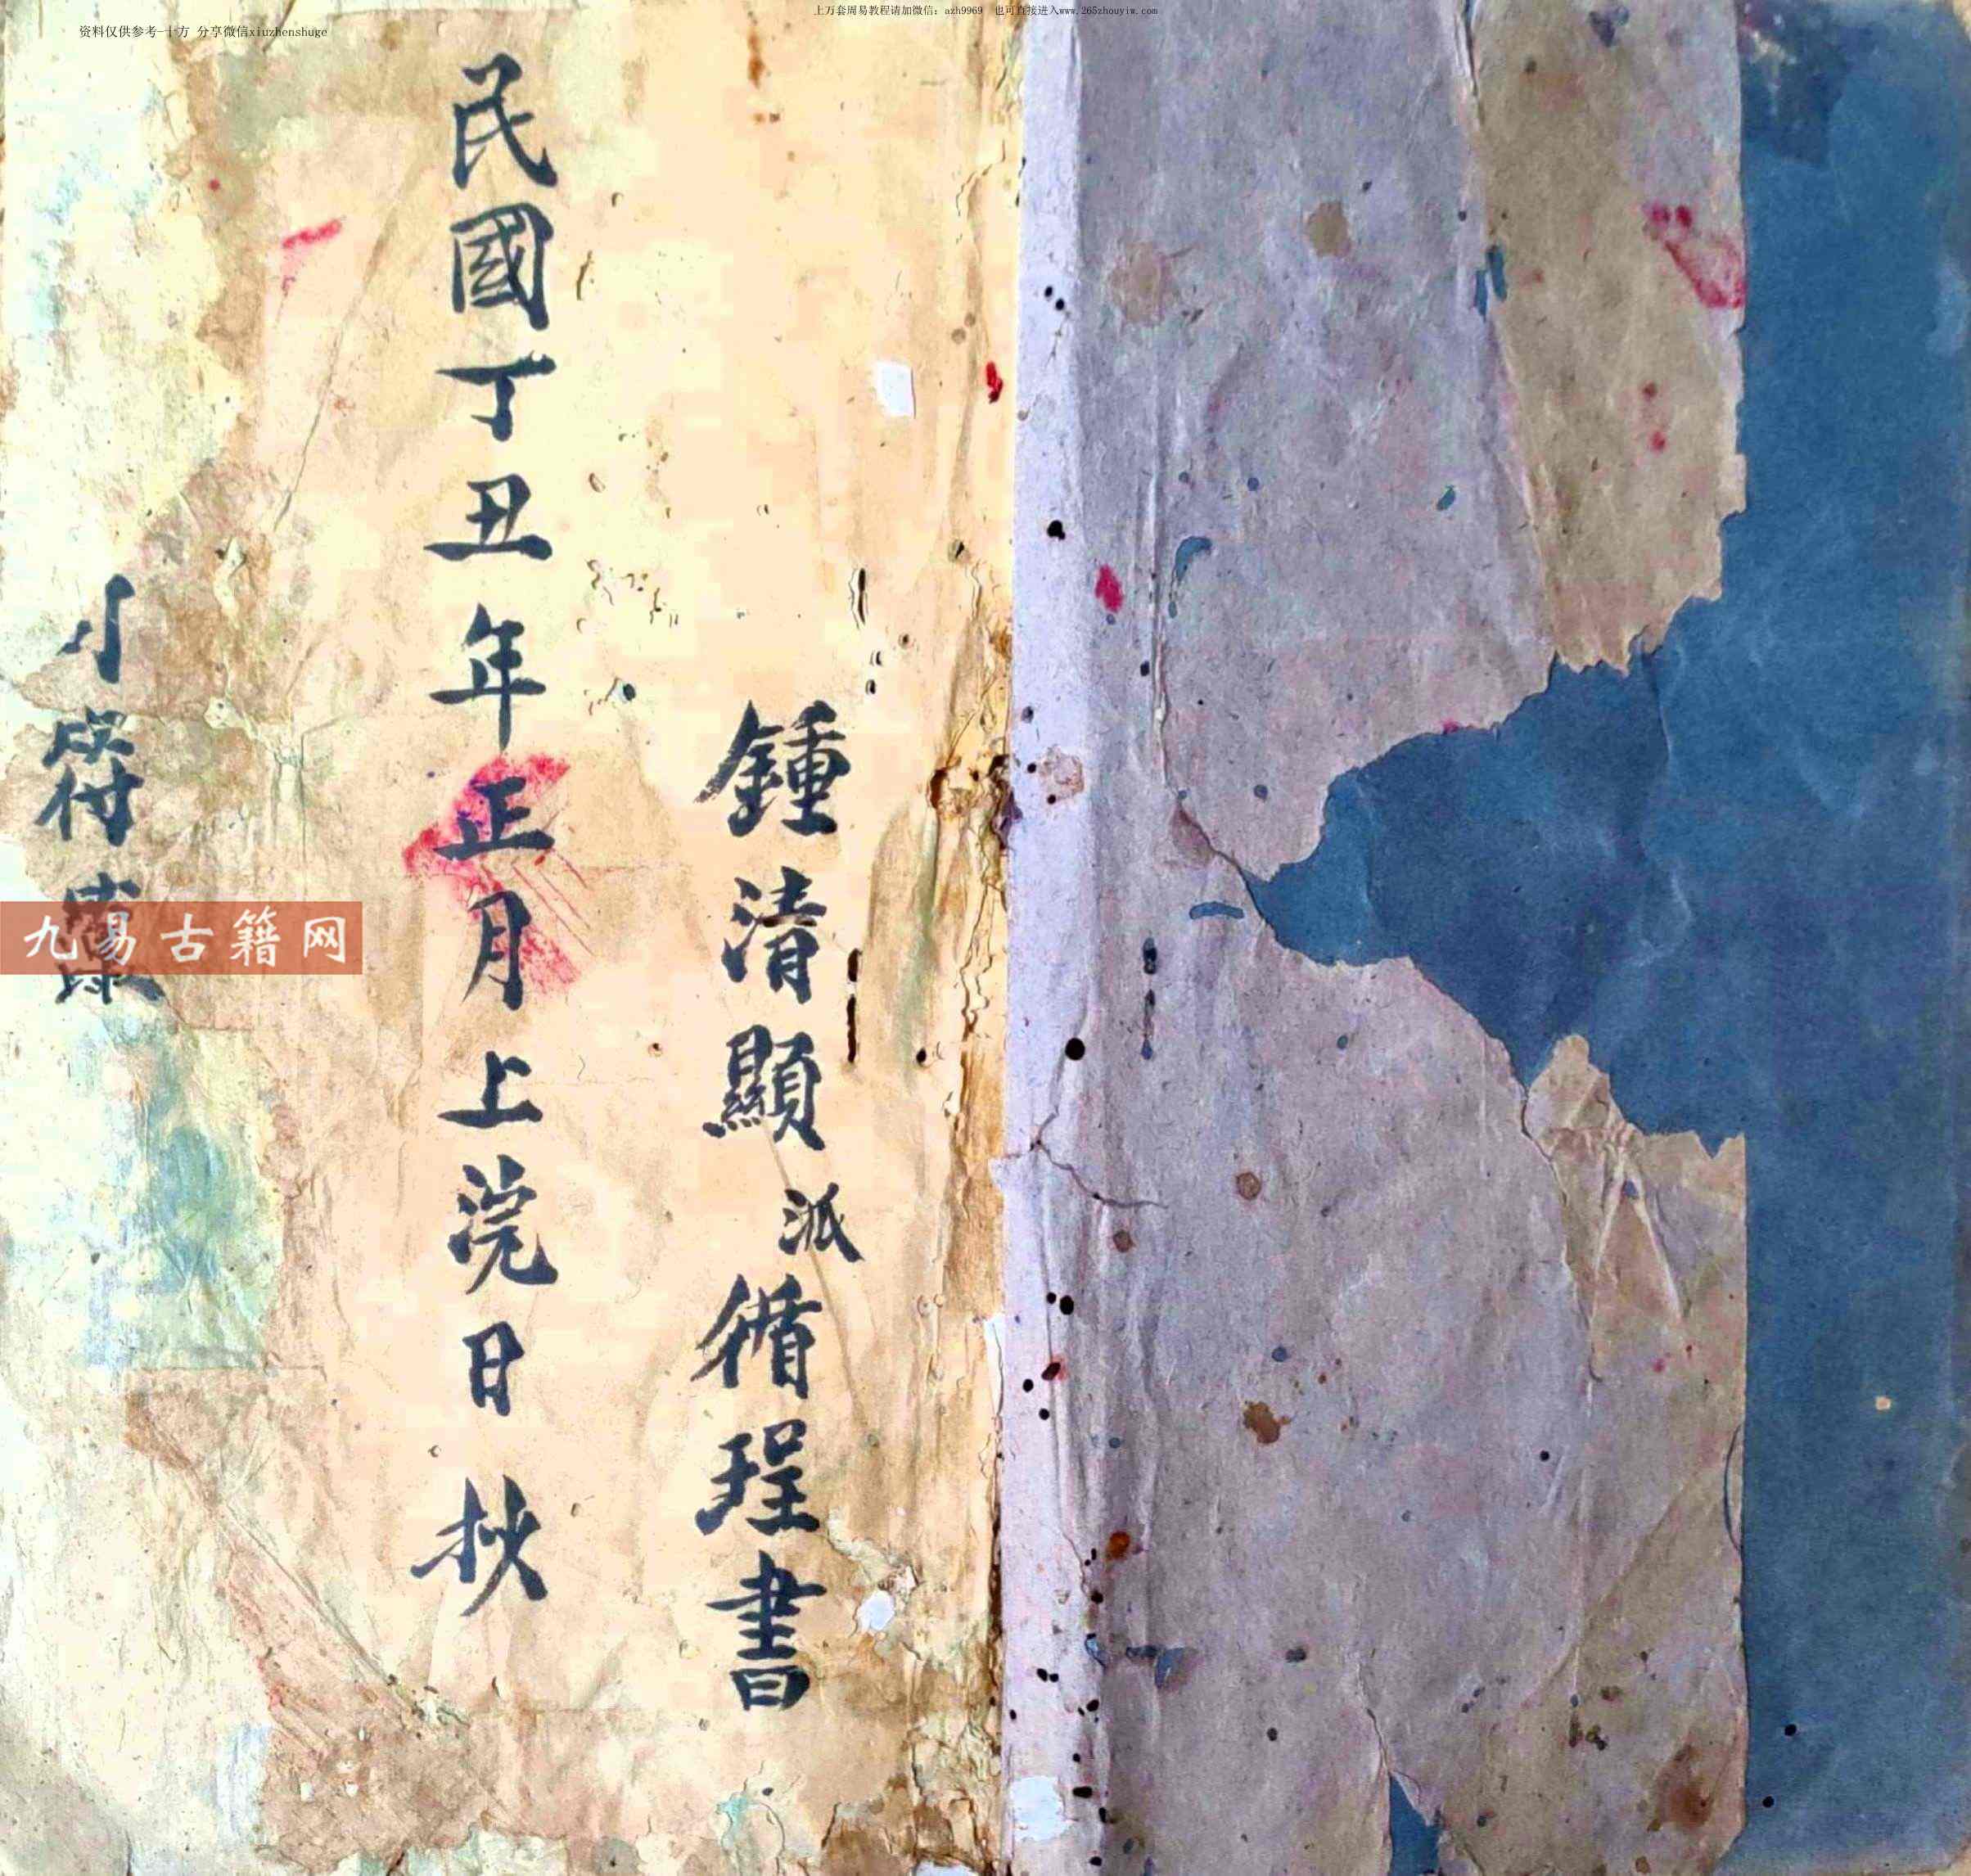 上万套周易教程请加微信：azh9969 也可直接进入www.265zhouyiw.com
资料仅供参考-十方 分享微信xiuzhenshuge
鍾清顯派循珵書
民國丁丑年正月上浣日抄
符
九易古籍网